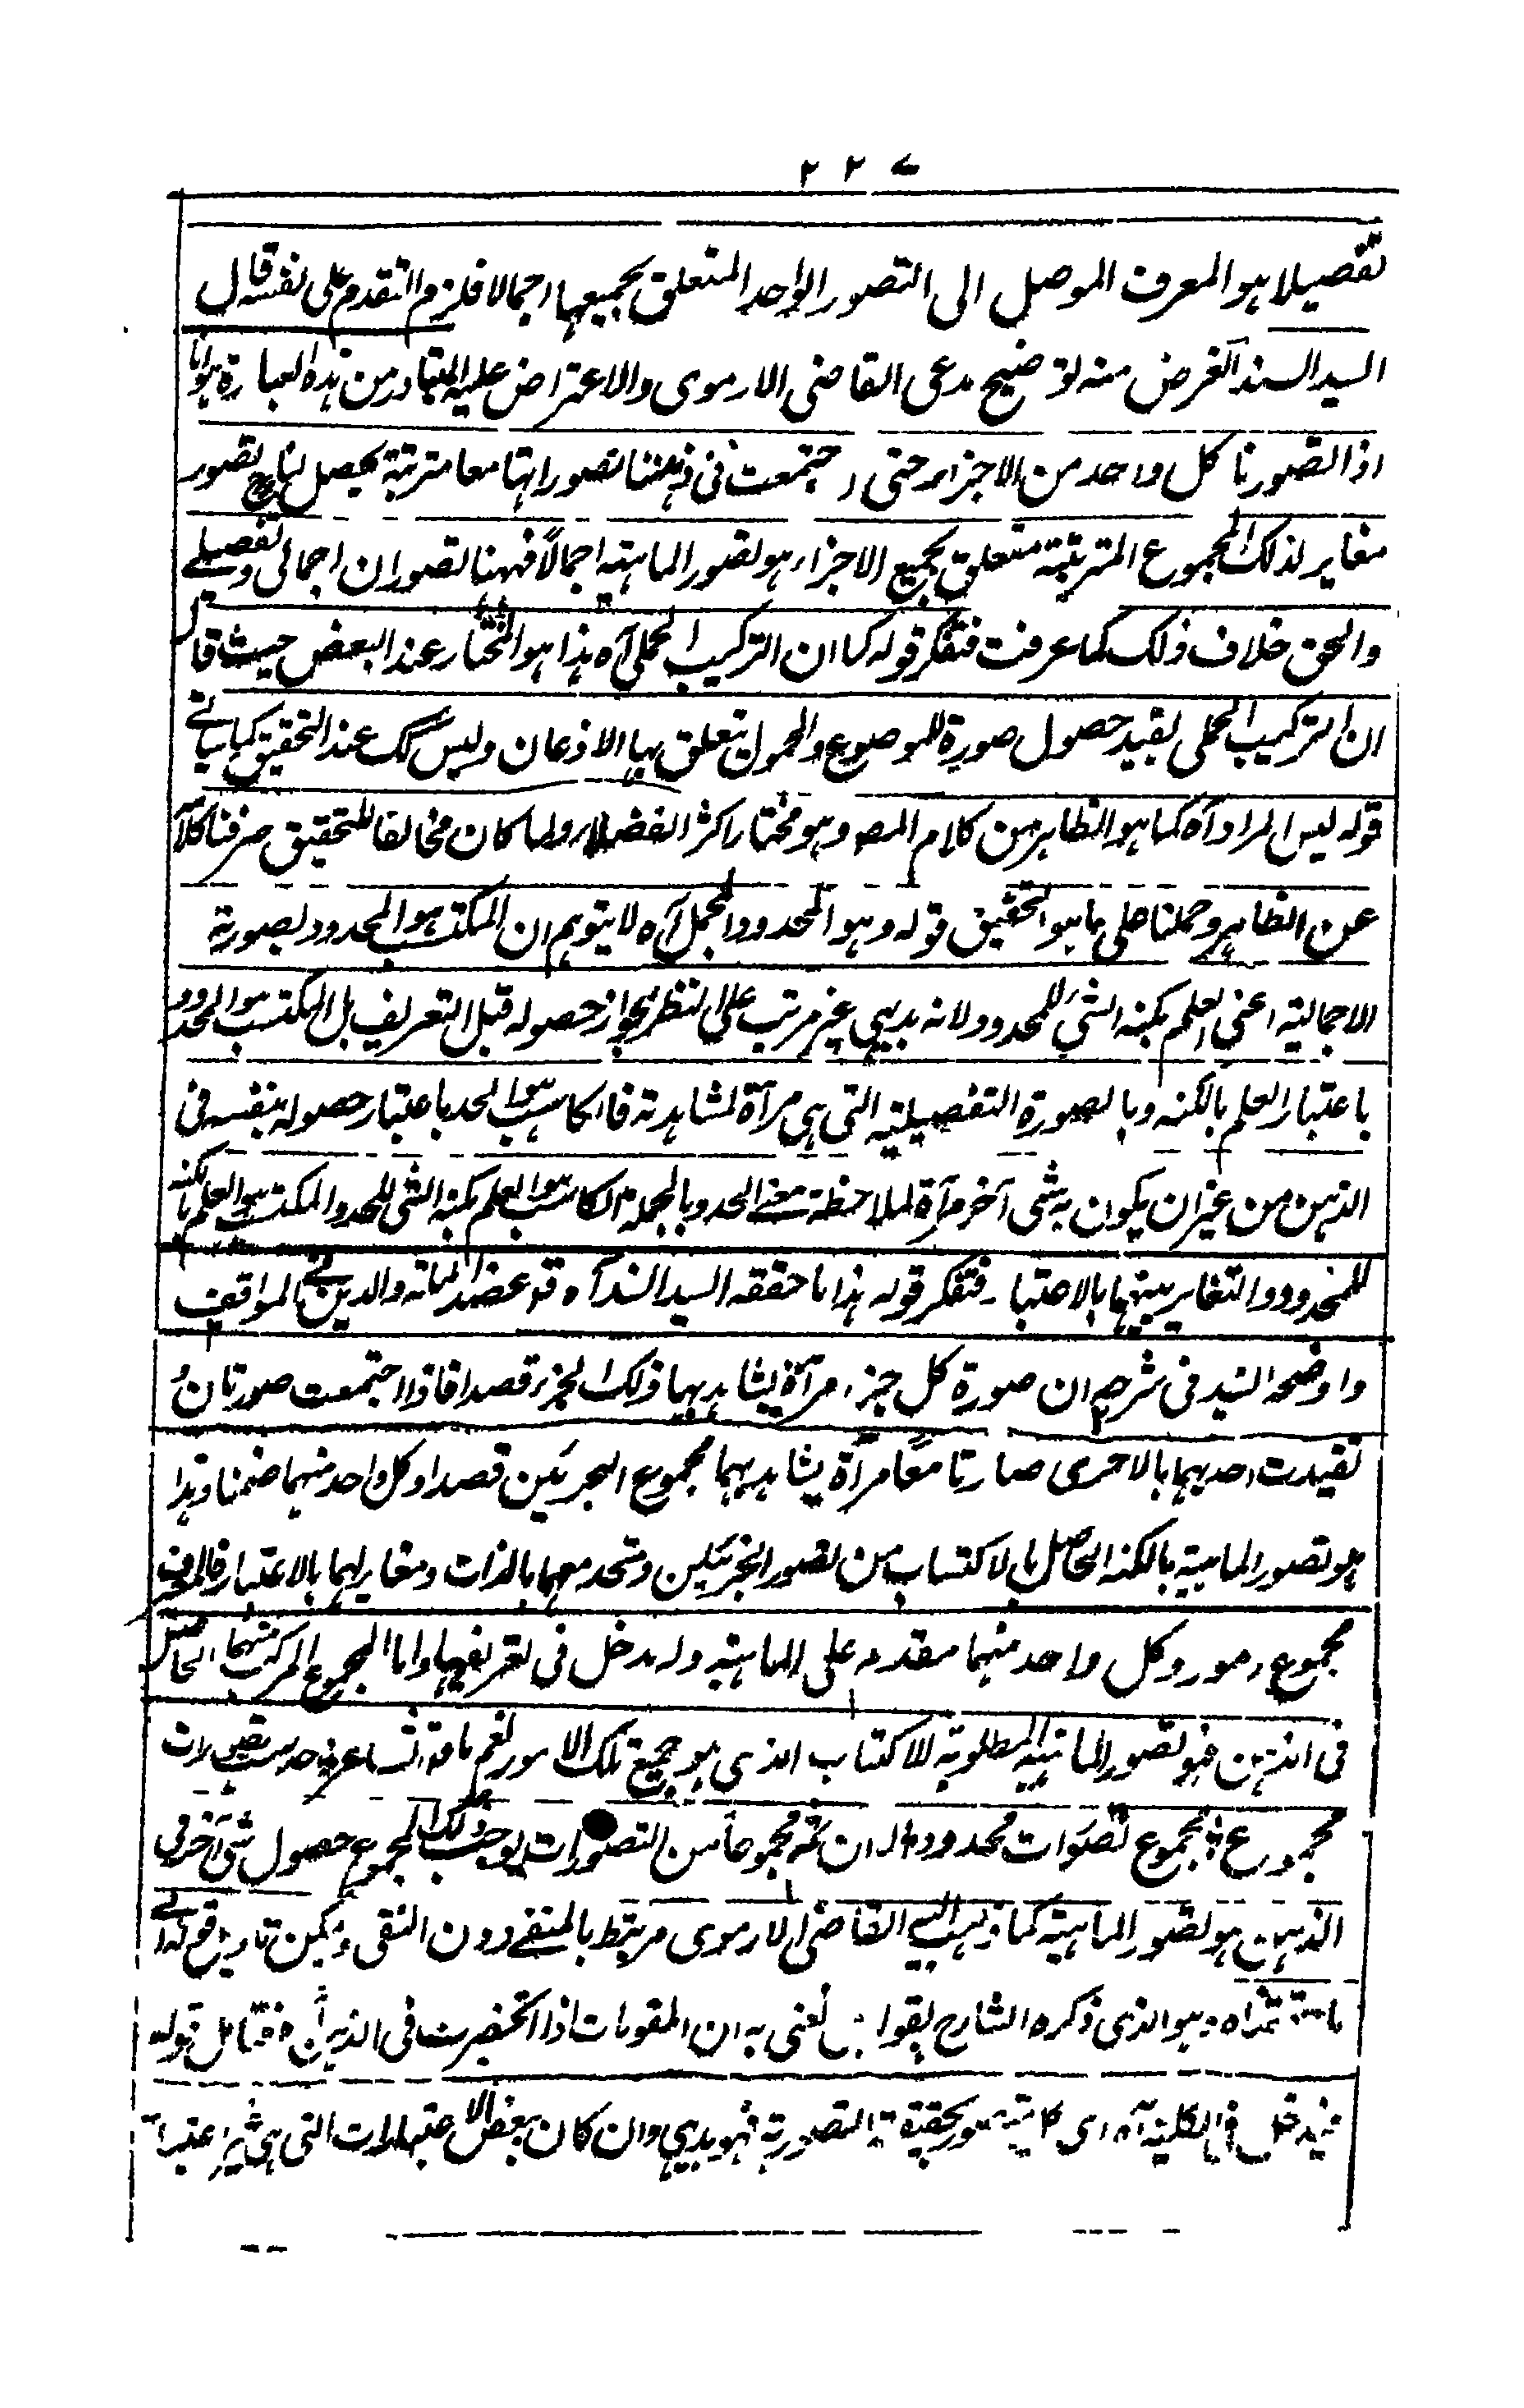 ٢٢٧
تفصيلا هو المعرف الموصل الى التصور الواحد المتعلق بجميعها اجمالا فلزم التقدم على نفسه قال
السيد السند الغرض منه توضيح مدعى القاضى الارموى والاعتراض عليه المتبادر من هذه العبارة هو انا
اذا تصورنا كل واحد من الاجزاء حتى اجتمعت فى ذهننا تصوراتها معا مترتبة يحصل لنا ح تصور
مغاير لذلك المجموع المترتبة متعلق بجميع الاجزاء هو تصور الماهية اجمالاً فههنا تصوران اجمالى وتفصيلے
والحق خلاف ذلك كما عرفت فتفكر قوله كما ان التركيب الحملى آه هذا هو المختار عند البعض حيث قال
ان التركيب الحملى يفيد حصول صورة للموضوع والمحمول يتعلق بها الاذعان وليس كك عند التحقيق كما سياتے
قوله ليس المراد آه كما هو الظاهر من كلام المصـ وهو مختار اكثر الفضلاء ولما كان مخالفا للتحقيق صرفنا كلامه
عن الظاهر وحملنا على ما هو التحقيق قوله وهو المحدود المجمل آه لا يتوهم ان المكتسب هو المحدود بصورته
الاجمالية اعنى العلم بكنه الشئ للمحدود لانه بديهى غير مرتب على النظر لجواز حصوله قبل التعريف بل المكتسب هو المحدود
باعتبار العلم بالكنه وبالصورة التفصيلية التى هى مرآة لمشاهدته فالكاسب هو الحد باعتبار حصوله بنفسه فى
الذهن من غير ان يكون به شئ آخر مرآة لملاحظة معنے الحد وبالجملة الكاسب هو العلم بكنه الشئ للحد والمكتسب هو العلم بالكنه
للمحدود والتغاير بينهما بالاعتبار فتفكر قوله هذا ما حققه السيد السند آه قد عضد الملة والدين فے المواقف
واوضحه السيد فى شرحه ان صورة كل جزء مرآة يشاهد بها ذلك الجزء قصدا فاذا اجتمعت صورتان و
تقيدت احدهما بالاخرى صارتا معاً مرآة يشاهد بهما مجموع الجزئين قصدا وكل واحد منهما ضمنا وهذا
هو تصور الماهية بالكنه الحاصل بالاكتساب من تصور الجزئين ومتحد معهما بالذات ومغاير لهما بالاعتبار فالمعرف
مجموع امور وكل واحد منهما مقدم على الماهية وله مدخل فى تعريفها واما المجموع المركب منهما الحاصل
فى الذهن فهو تصور الماهية المطلوبة للاكتساب الذى هو جميع تلك الامور نعم
مجموع تصورات محدودة ان ثمه مجموعاً من التصورات يوجب ذلك المجموع حصول شئ آخر فى
الذهن هو تصور الماهية كما ذهب اليه القاضى الارموى مرتبط بالمنفے دون النفى ويمكن تاويل قوله
وهو الذى ذكره الشارح بقوله نعنى به ان المقومات اذا استحضرت فى الذهن آه فتامل قوله
فيدخل فى الكلية آه اى التصورية فهو بديهى وان كان بعض الاعتبارات التى هى